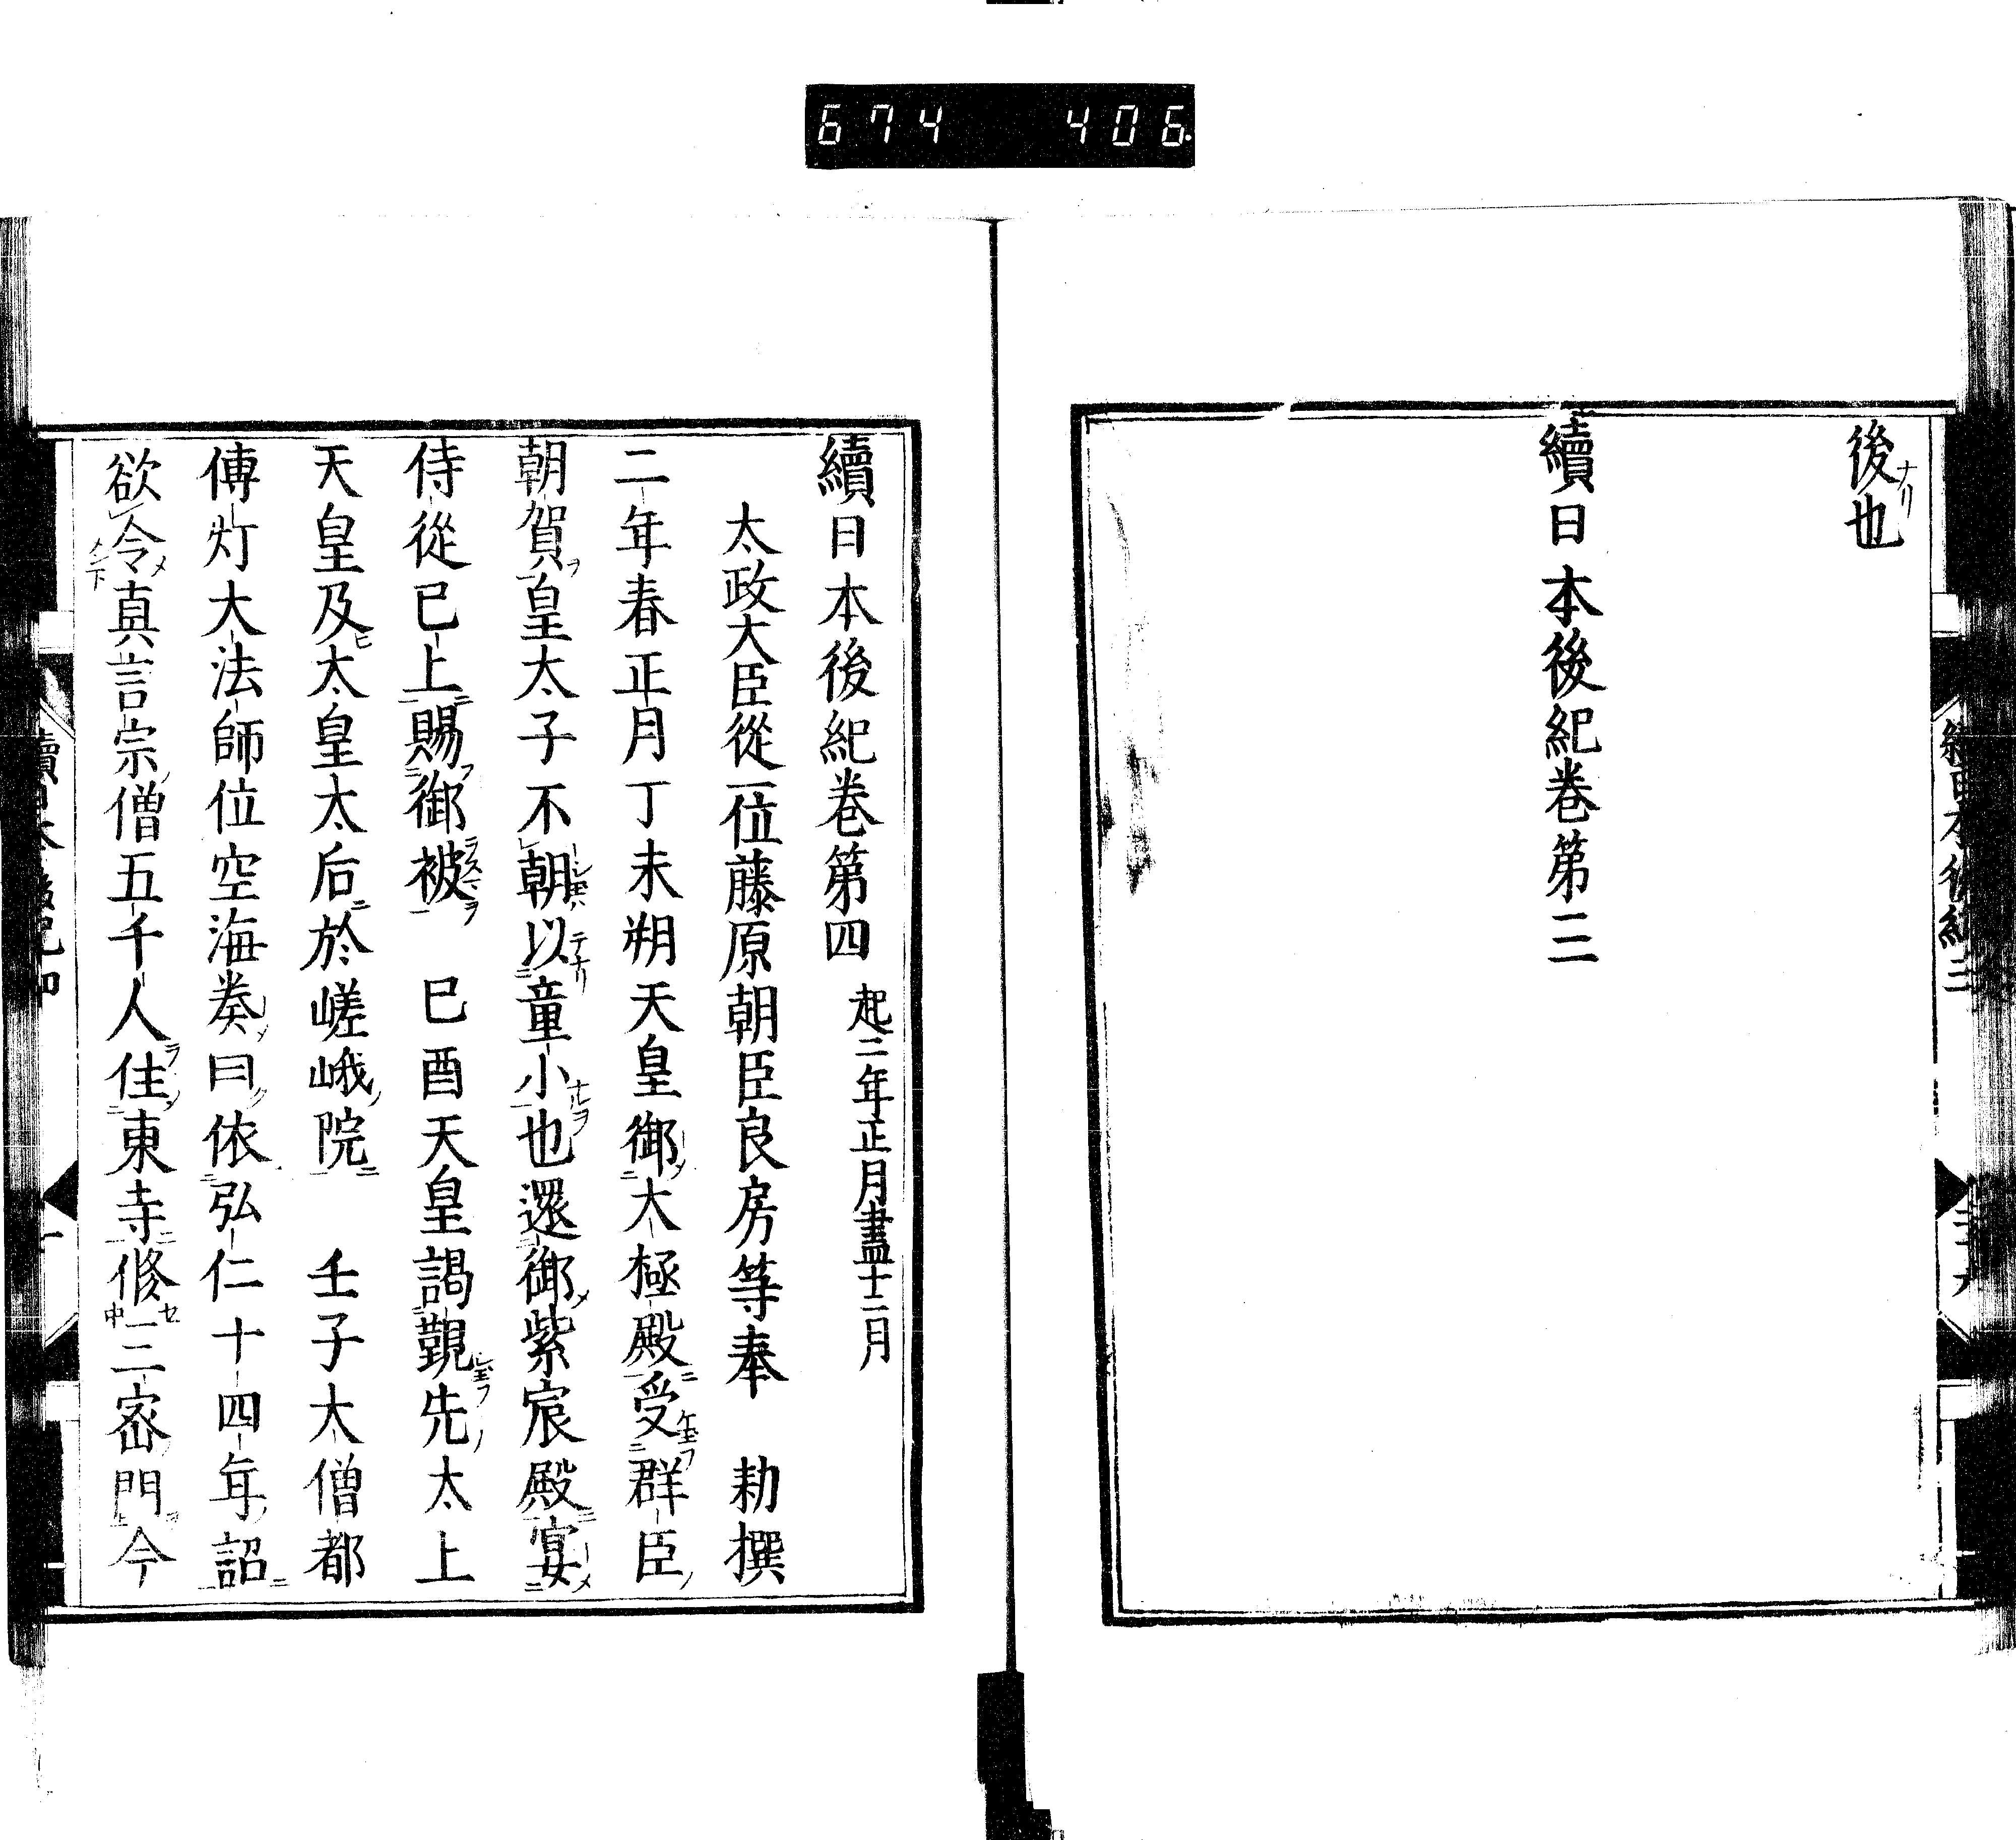 674 406
後也
續日本後紀卷第三
續日本後紀卷第四 起二年正月盡十二月
太政大臣從一位藤原朝臣良房等奉 勅撰
二年春正月丁未朔天皇御大極殿受群臣
朝賀皇太子不朝以童小也還御紫宸殿宴
侍從已上賜御被 已酉天皇謁覲先太上
天皇及太皇太后於嵯峨院 壬子大僧都
傳灯大法師位空海奏曰依弘仁十四年詔
欲令真言宗僧五千人住東寺修三密門今